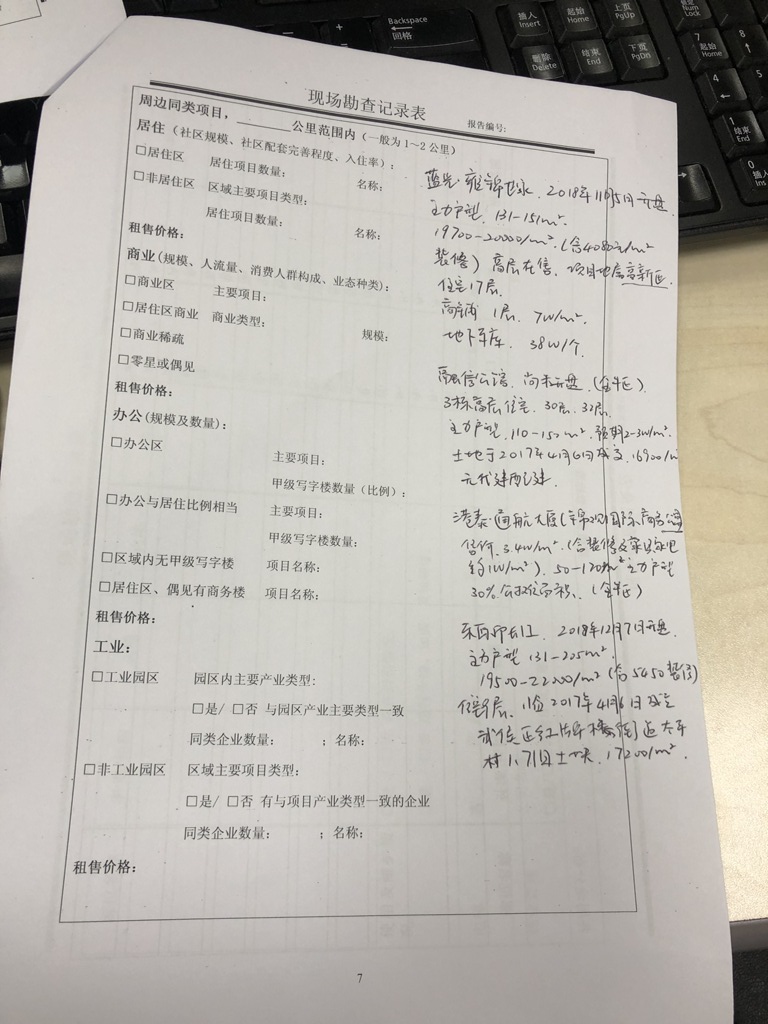 Backspace
回格
插入
Insert
起始
Home
上页
PgUp
删除
Delete
结束
End
下页
PgDn
Num
Lock
7
起始
Home
8
4
5
1
结束
End
0
现场勘查记录表
报告编号:
周边同类项目，______公里范围内（一般为1~2公里）
居住（社区规模、社区配套完善程度、入住率）：
□居住区 居住项目数量： 名称：
□非居住区 区域主要项目类型：
居住项目数量： 名称：
租售价格：
商业(规模、人流量、消费人群构成、业态种类)：
□商业区 主要项目：
□居住区商业 商业类型： 规模：
□商业稀疏
□零星或偶见
租售价格：
办公(规模及数量)：
□办公区 主要项目：
甲级写字楼数量（比例）：
□办公与居住比例相当 主要项目：
甲级写字楼数量：
□区域内无甲级写字楼 项目名称：
□居住区、偶见有商务楼 项目名称：
租售价格：
工业：
□工业园区 园区内主要产业类型:
□是/ □否 与园区产业主要类型一致
同类企业数量： ；名称：
□非工业园区 区域主要项目类型：
□是/ □否 有与项目产业类型一致的企业
同类企业数量： ；名称：
租售价格：
蓝光·雍锦世家. 2018年11月5日开盘.
主力户型. 131-151m².
19700-20000/m².(含4080元/m²
装修) 高层在售. 项目地属高新区.
住宅17层.
商铺 1层. 7W/m².
地下车库. 38W/个.
融信公馆. 尚未开盘.(金牛区).
3栋高层住宅. 30层. 32层.
主力户型. 110-150m². 预期2-3W/m².
土地于2017年4月6日成交. 16900/m
港泰·通航大厦 国际商务公寓
售价. 3.4W/m².(含装修
约1W/m²). 50-120m² 主力户型
30% (金牛区)
东原印长江. 2018年12月7日开盘.
主力户型 131-205m².
19500-22000/m² (含5450装修)
2017年4月6日
武侯区红牌楼街道太平
村1、7组土地. 17200/m².
7